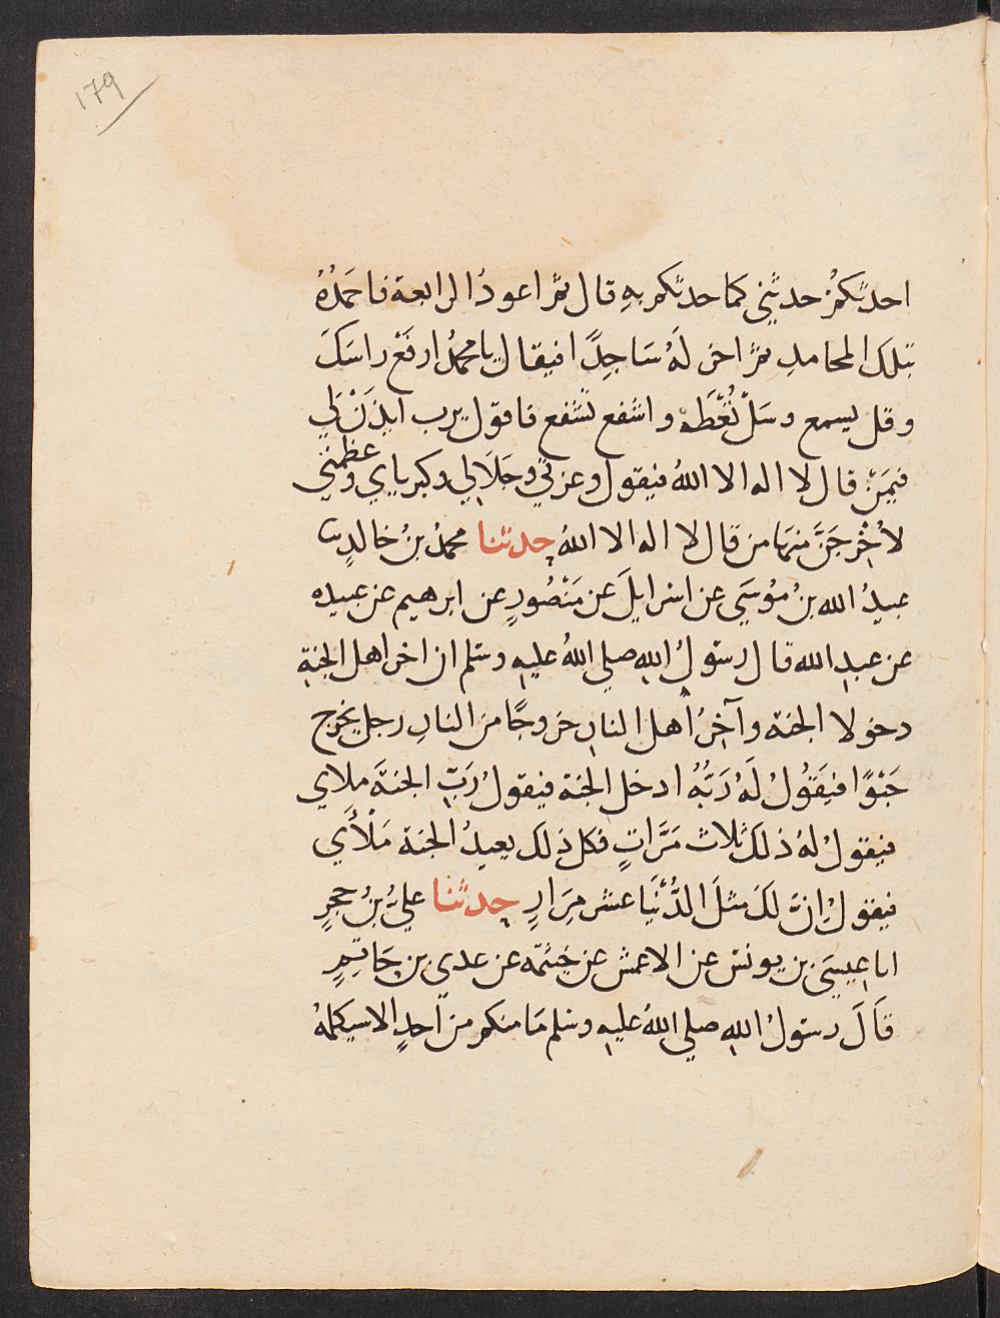 ١٧٩
احدثكم حدثني كما حدثكم به قال ثم اعود الرابعة فاحمَدُهُ
بتلك المحامد ثم اخر لَهُ سَاجِدًا فيقال يا محمدُ ارفَعْ راسَكَ
وقل يسمع وسَلْ تُعْطَهْ واشفع تشفع فاقول يرب ايذَنْ لِي
فيمَنْ قال لا اله الا اللهُ فيقول وعزتي وجَلَالِي وكبرياي وعظمتي
لأُخْرِجَنَّ منهَا من قال لا اله الا اللهُ حدثنا محمدُ بنُ خالدٍ نا
عبيدُ الله بنُ مُوسَي عن اسرايلَ عن مَنْصُورٍ عن ابرهيم عن عبيده
عن عبدِ الله قال رسُولُ اللهِ صلي اللهُ عليهِ وسَلم ان اخر اهل الجنة
دخولا الجنة وآخِرُ اهل النارِ خروجًا من النارِ رجل يخرج
حَبْوًا فيَقُولُ لَهُ رَبُّهُ ادخل الجنة فيقولُ رَبِّ الجنةَ ملاي
فيقولُ لهُ ذلكَ ثلاث مَرَّاتٍ فكل ذلك يعيدُ الجنة مَلْأَي
فيقولُ اِنَّ لكَ مثلَ الدُّنْيَا عشر مِرَارٍ حدثنا عليُّ بنُ حجرٍ
انا عيسَي بن يونس عن الاعمش عن خيثَمَه عن عدي بن حَاتِمٍ
قَالَ رسُولُ اللهِ صلي اللهُ عليهِ وسَلم مَا منكم من اَحدٍ الا سيكلمهُ